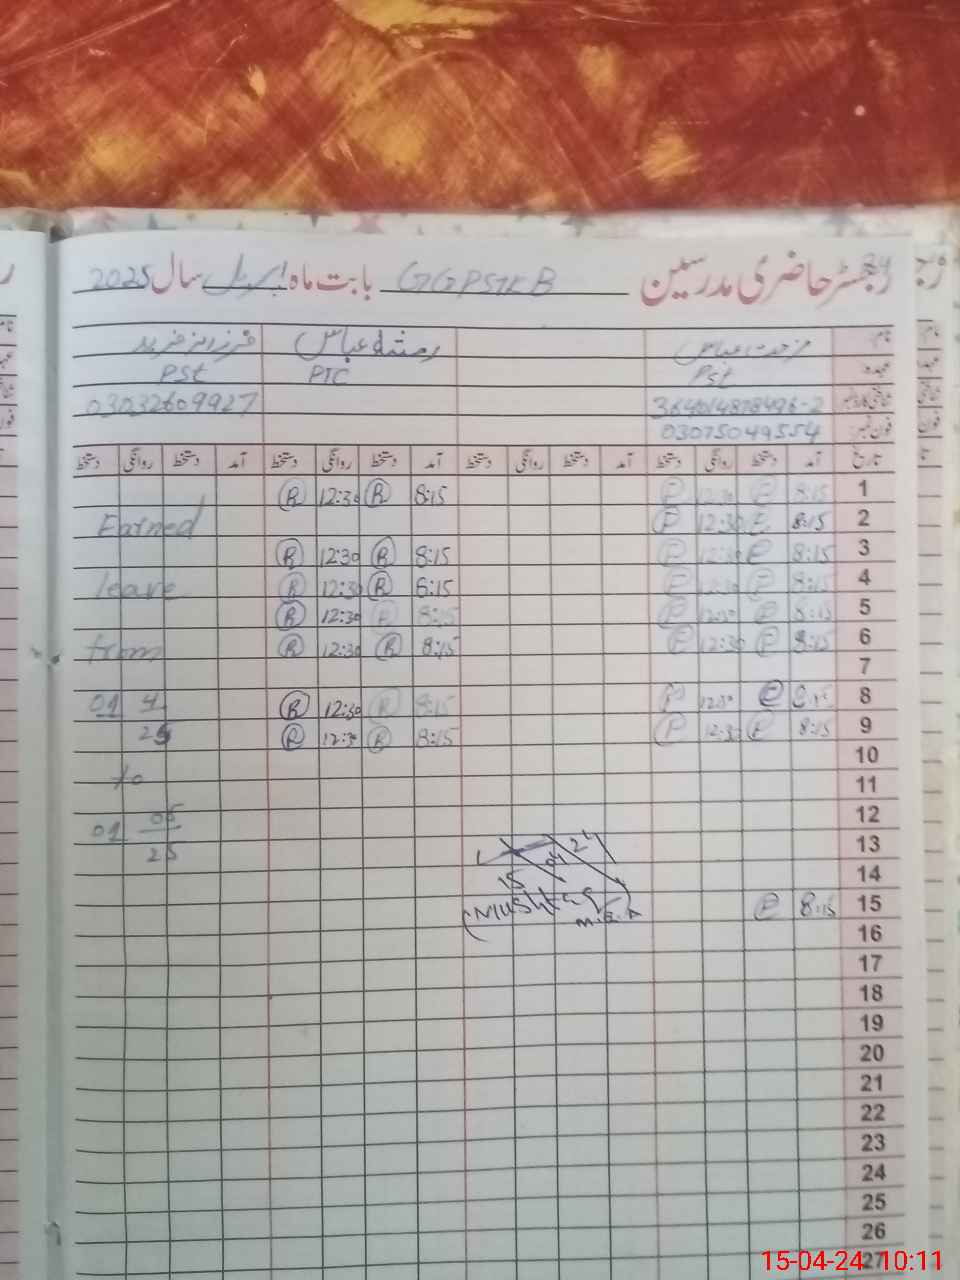 رجسٹر حاضری مدرسین GGPSTKB بابت ماہ اپریل سال 2025
نام عباس رمشا عباس فرزانہ فرید
عہدہ Pst PTC PSt
364014878496-2 03032609927
فون نمبر 03075049554
تاریخ آمد دستخط روانگی دستخط آمد دستخط روانگی دستخط آمد دستخط روانگی دستخط آمد دستخط روانگی دستخط
1 8:15 P 12:30 P 8:15 R 12:30 R
2 8:15 P 12:30 P Earned
3 8:15 P 12:30 P 8:15 R 12:30 R
4 8:15 P 12:30 P 8:15 R 12:30 R leave
5 8:15 P 12:30 P 8:15 R 12:30 R
6 8:15 P 12:30 P 8:15 R 12:30 R from
7
8 8:15 P 12:30 P 8:15 R 12:30 R 01 4
9 8:15 P 12:30 P 8:15 R 12:30 R 25
10
11 to
12 01 05
13 25
14 15 04
15 8:15 P Mushtaq
16
17
18
19
20
21
22
23
24
25
26
27
15-04-24 10:11